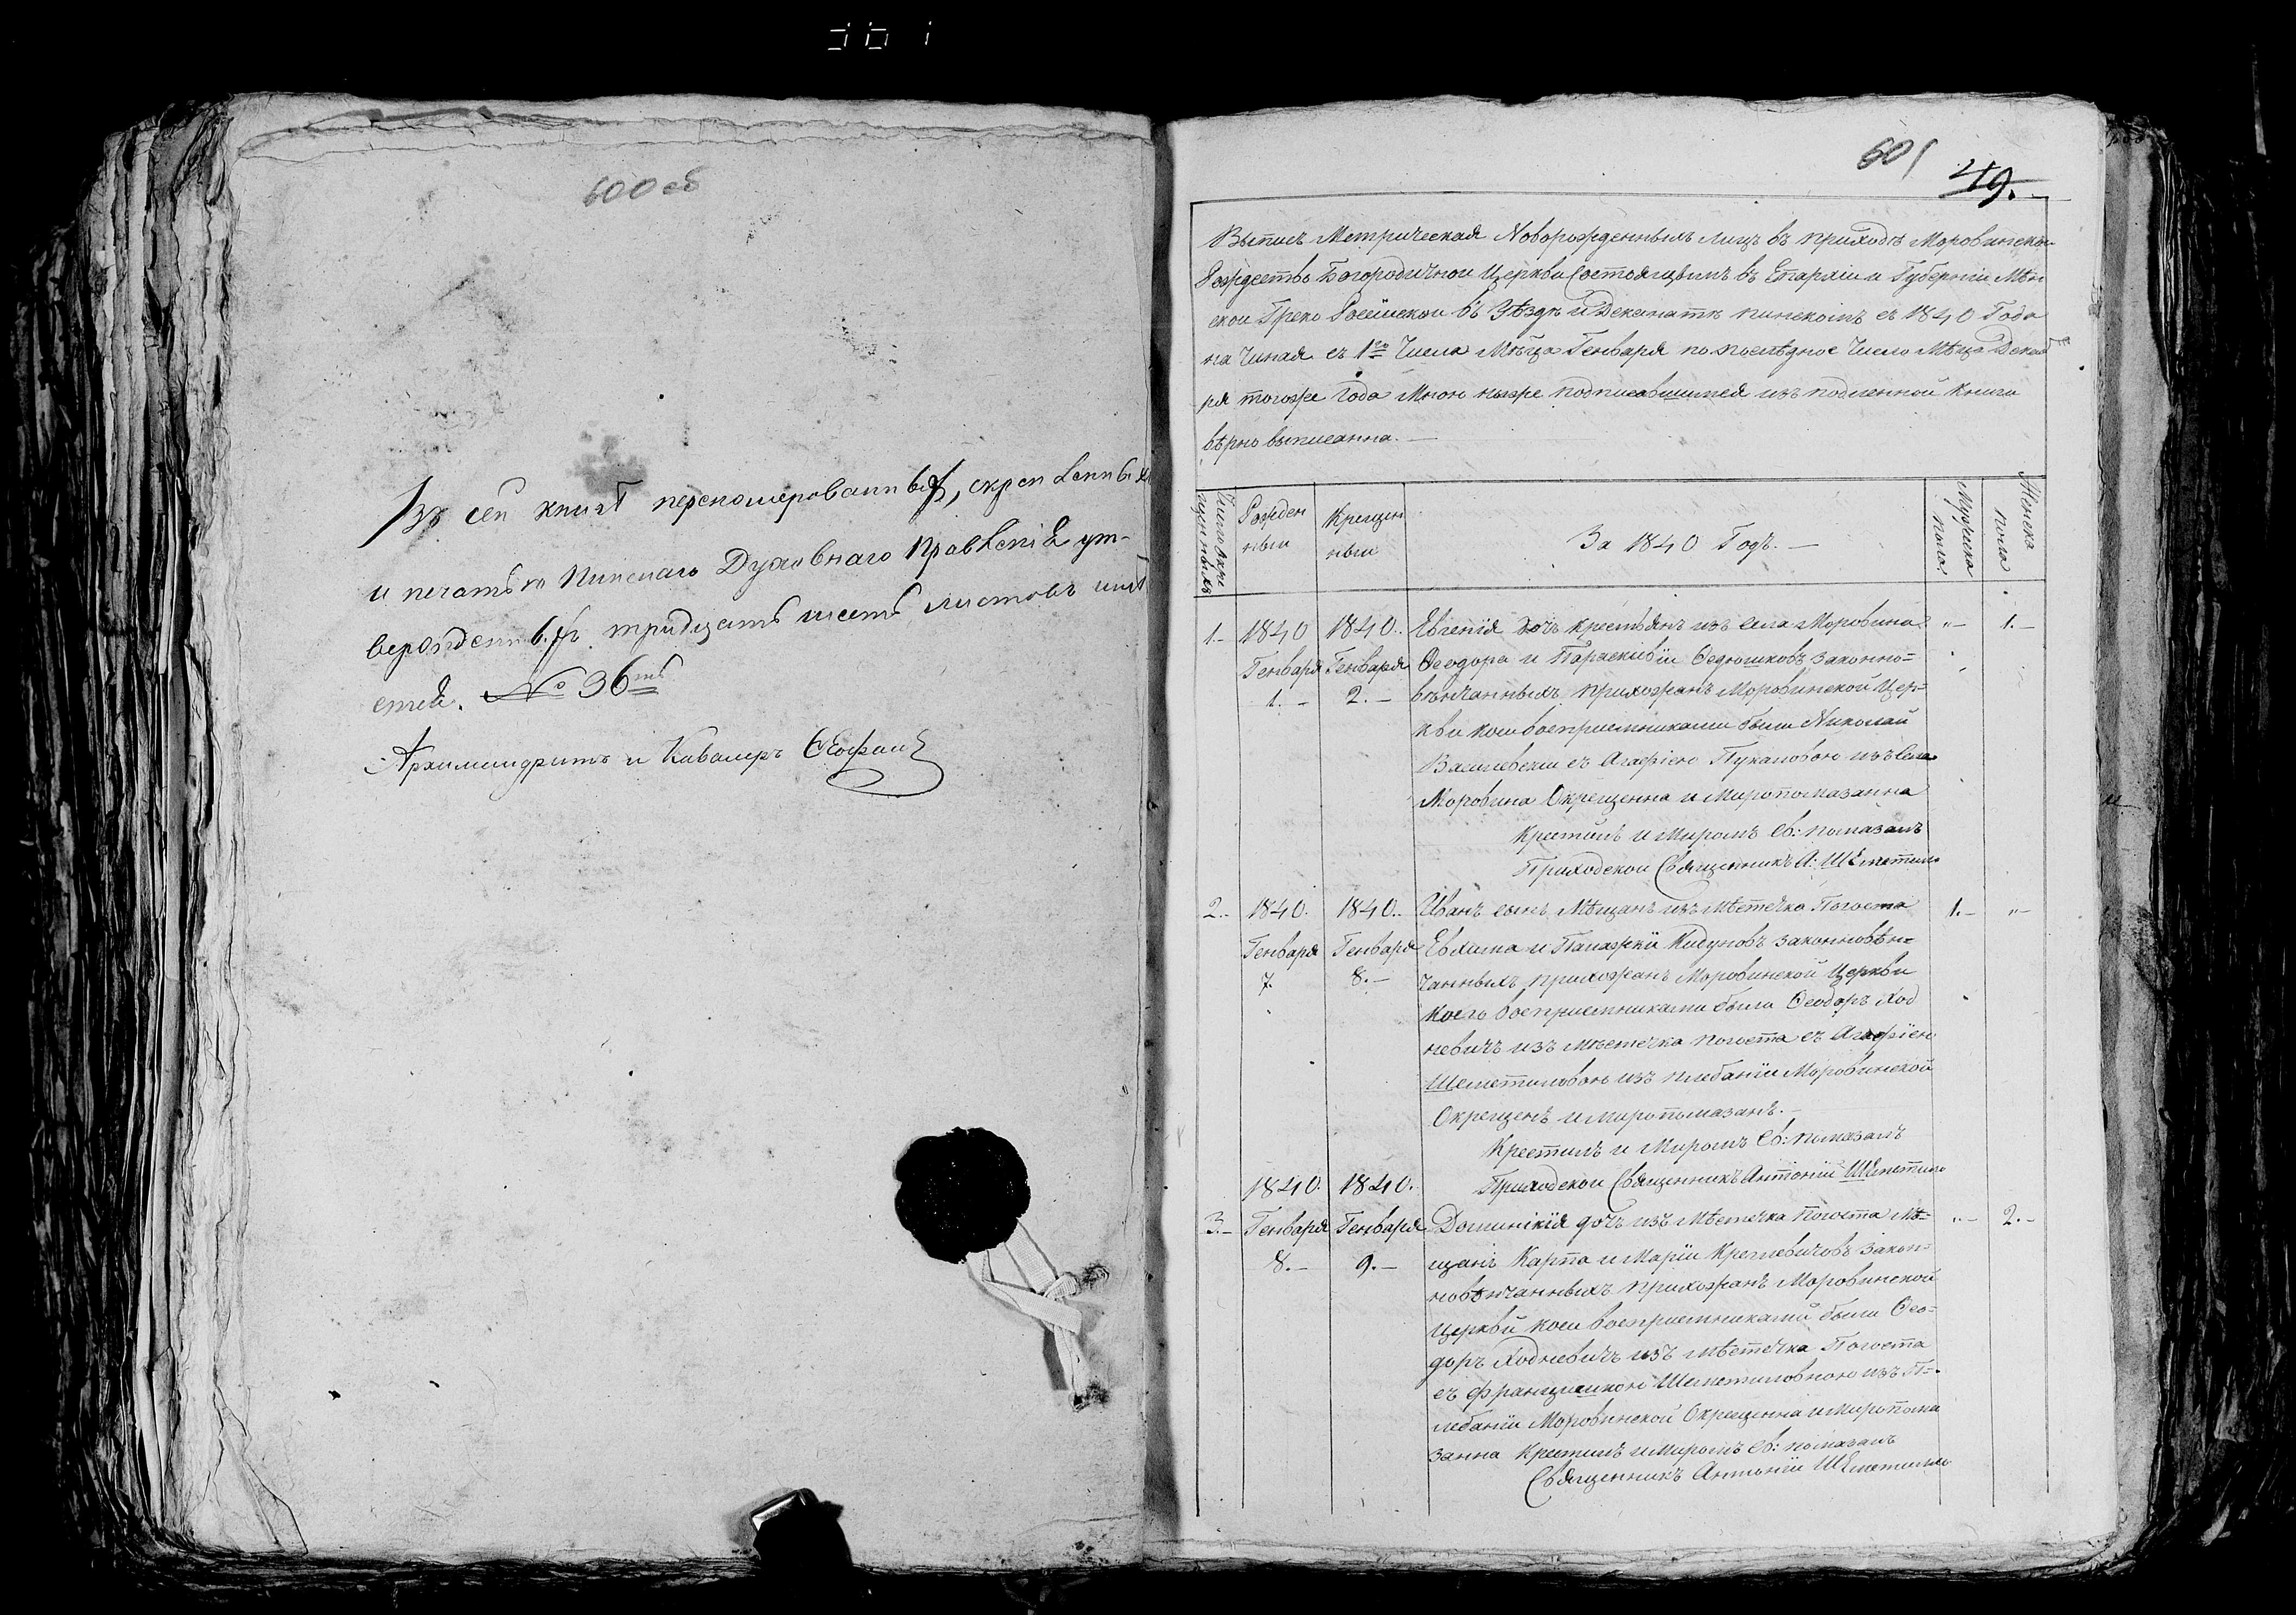 600 об
Въ сей книгѣ перенomерованныхъ, скрепленныхъ
и печатью Пинскаго Духовнаго Правленія ут-
вержденныхъ тридцать шесть листовъ имѣ
ется. № 36ть
Архимандритъ и Кавалеръ Ѳеофанъ
601
49.
Выпись Метрическая Новорожденныхъ лицъ въ приходѣ Моровинской
Рождество Богородичной Церкви Состоящымъ въ Епархіи и Губерніи Мин
ской Греко Россійской въ Уѣздѣ и Деканатѣ пинскомъ съ 1840 Года
на чиная съ 1го Числа Мѣца Генваря по послѣдное Число Мѣца Декаб
ря тогоже Года Мною ниже подписавшимся изъ подленной Книги
вѣрно выписанна. —
Число окре
щенныхъ
Рожден
ныи
Крещен
ныи
За 1840 Годъ. —
Мужеска
пола
Женска
пола
1.- 1840 1840.. Евгенія дочь крестьянъ изъ села Моровина „- 1.-
Генваря Генваря Ѳеодора и Параскивіи Федюшковъ законно=
1.- 2.- вѣнчанныхъ прихожанъ Моровинской Цер=
кви коей воспріемниками были Николай
Василевски съ Агафіею Пукаловою изъ Села
Моровина Окрещенна и Миропомазанна
Крестилъ и Миромъ Св: помазалъ
Приходской Священникъ А: Шеметило
2.. 1840. 1840.. Иванъ сынъ Мѣщанъ изъ Мѣстечка Погоста 1.- „-
Генваря Генваря Евхима и Палажки Кидуновъ законновѣн=
7. 8.- чанныхъ прихожанъ Моровинской Церкви
коего воспріемниками были Ѳеодоръ Ход
невичъ изъ мѣстечка погоста съ Агафіею
Шеметиловою изъ плебаніи Моровинской
Окрещенъ и миропомазанъ.-
Крестилъ и Миромъ Св: помазалъ
1840. 1840. Приходской Священникъ Антоній Шеметило
3.- Генваря Генваря Доминикія дочь изъ Мѣстечка Погоста Мѣ= „- 2.-
8.- 9.- щанъ Карпа и Маріи Кремевичовъ закон=
новѣнчанныхъ прихожанъ Моровинской
Церкви коей воспріемниками были Ѳео=
доръ Ходневичъ изъ мѣстечка Погоста
съ францишкою Шеметиловною изъ П=
лебаніи Моровинской Окрещенна и Миропома
занна Крестилъ и Миромъ Св: помазалъ
Священникъ Антоніи Шеметило